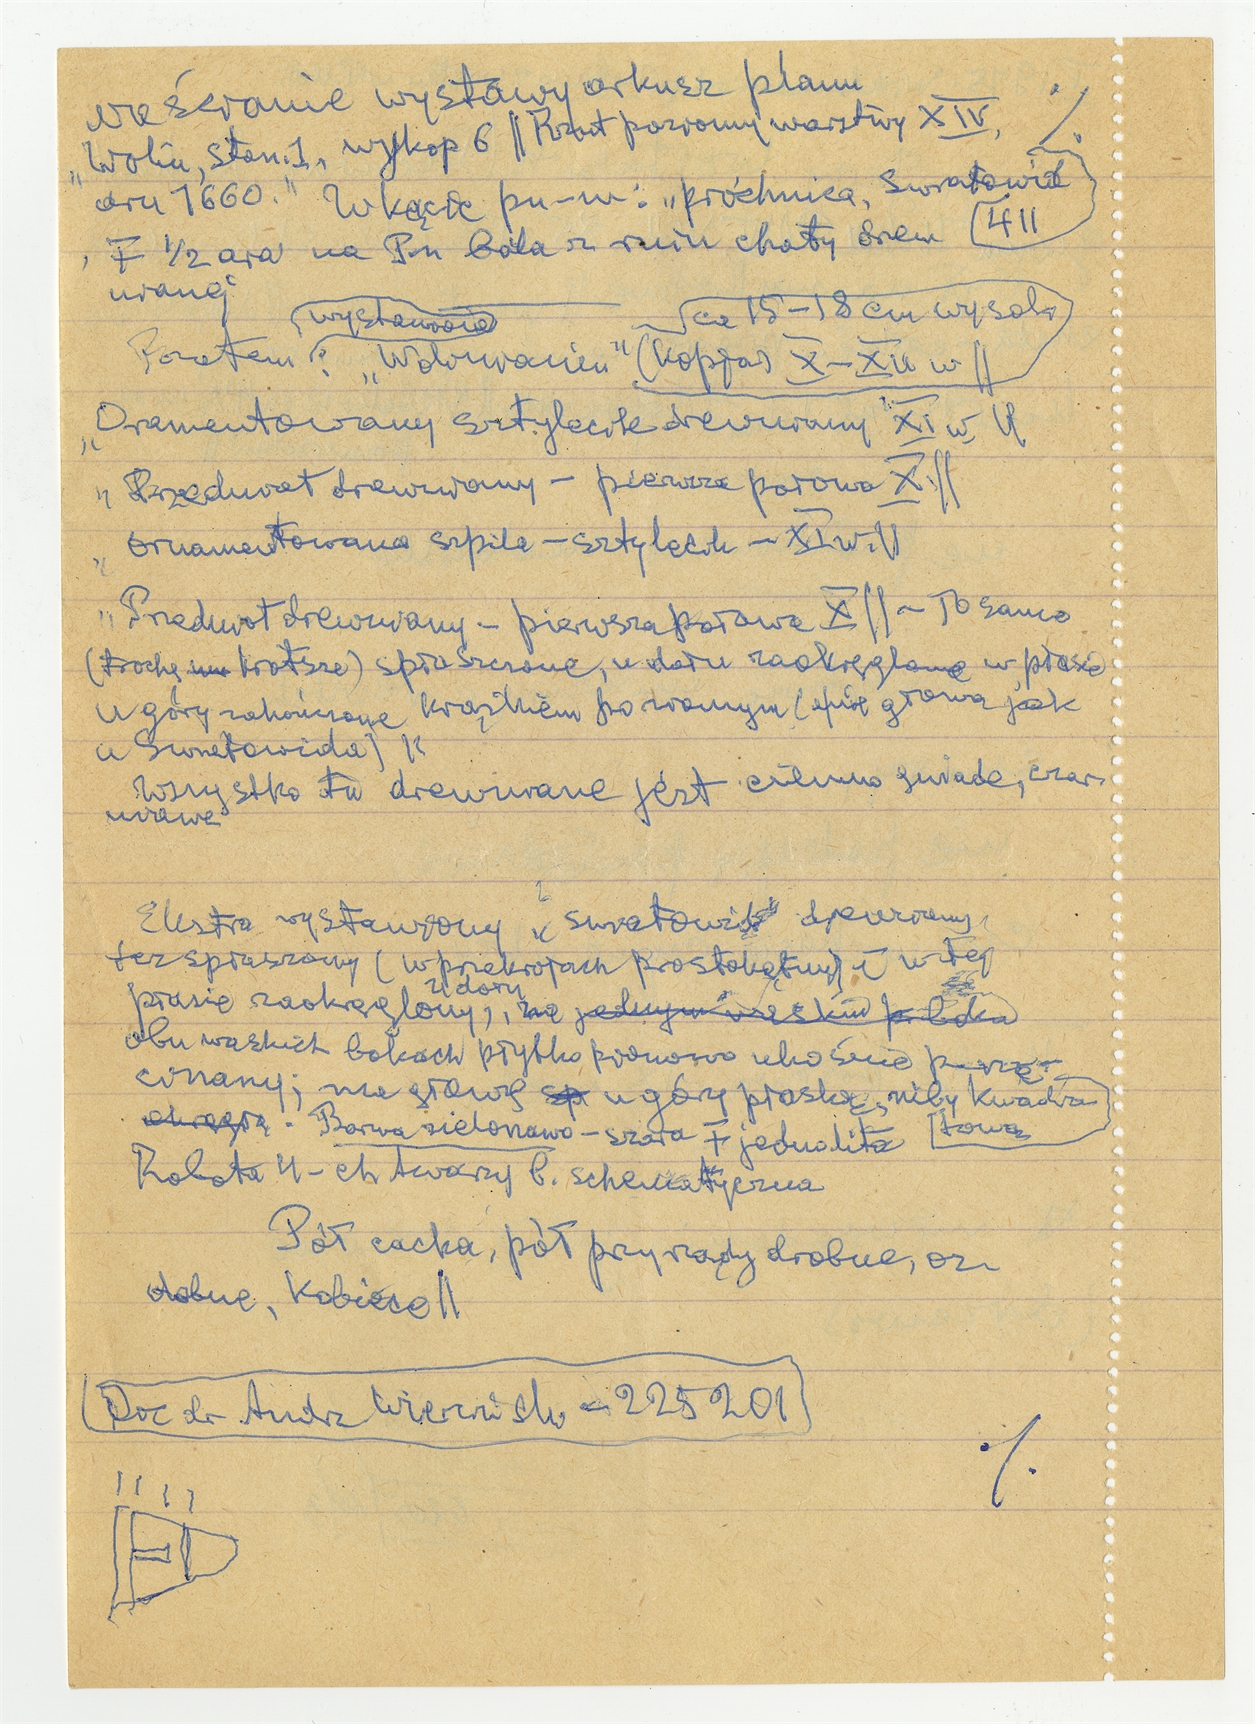 na ścianie wystawy arkusz planu ./.
"Wolin, stan. 1, wykop 6 // Rzut poziomy warstwy XIV,
aru 1660." W kącie pn-w: "próchnica, Światowid
411
∓ 1/2 ara na Pn bala z ruin chaty drew
nianej
wystawione ca 15-18 cm wysok
Pozatem: "Wolinianin" (kopja) X-XII w //
"Ornamentowany sztylecik drewniany XI w. //
"Przedmiot drewniany - pierwsza połowa X //
"ornamentowana szpila - sztylecik - XI w. //
"Przedmiot drewniany - pierwsza połowa X // ~ To samo
(trochę krótsze) spłaszczone, u dołu zaokrąglone w płasie
u góry zakończone krążkiem poziomym (głową jak
u Światowida) //
Wszystko to drewniane jest ciemno śniade, czar-
niawe
Ekstra wystawiony "Światowid" drewniany,
też spłaszczony (w przekrojach prostokątny) i w tej
płasie zaokrąglony u dołu, na jednym wąskim boku
obu wąskich bokach płytko pionowo ukośnie
cinany; ma głowę u góry płaską, niby kwadra
tową
okrągłą. Barwa zielonawo-szara ∓ jednolita
Robota 4-ch twarzy b. schematyczna
Pół cacka, pół przyrządy drobne, oz-
dobne, kobiece //
Doc dr Andrz Wierciński - 225201
./.